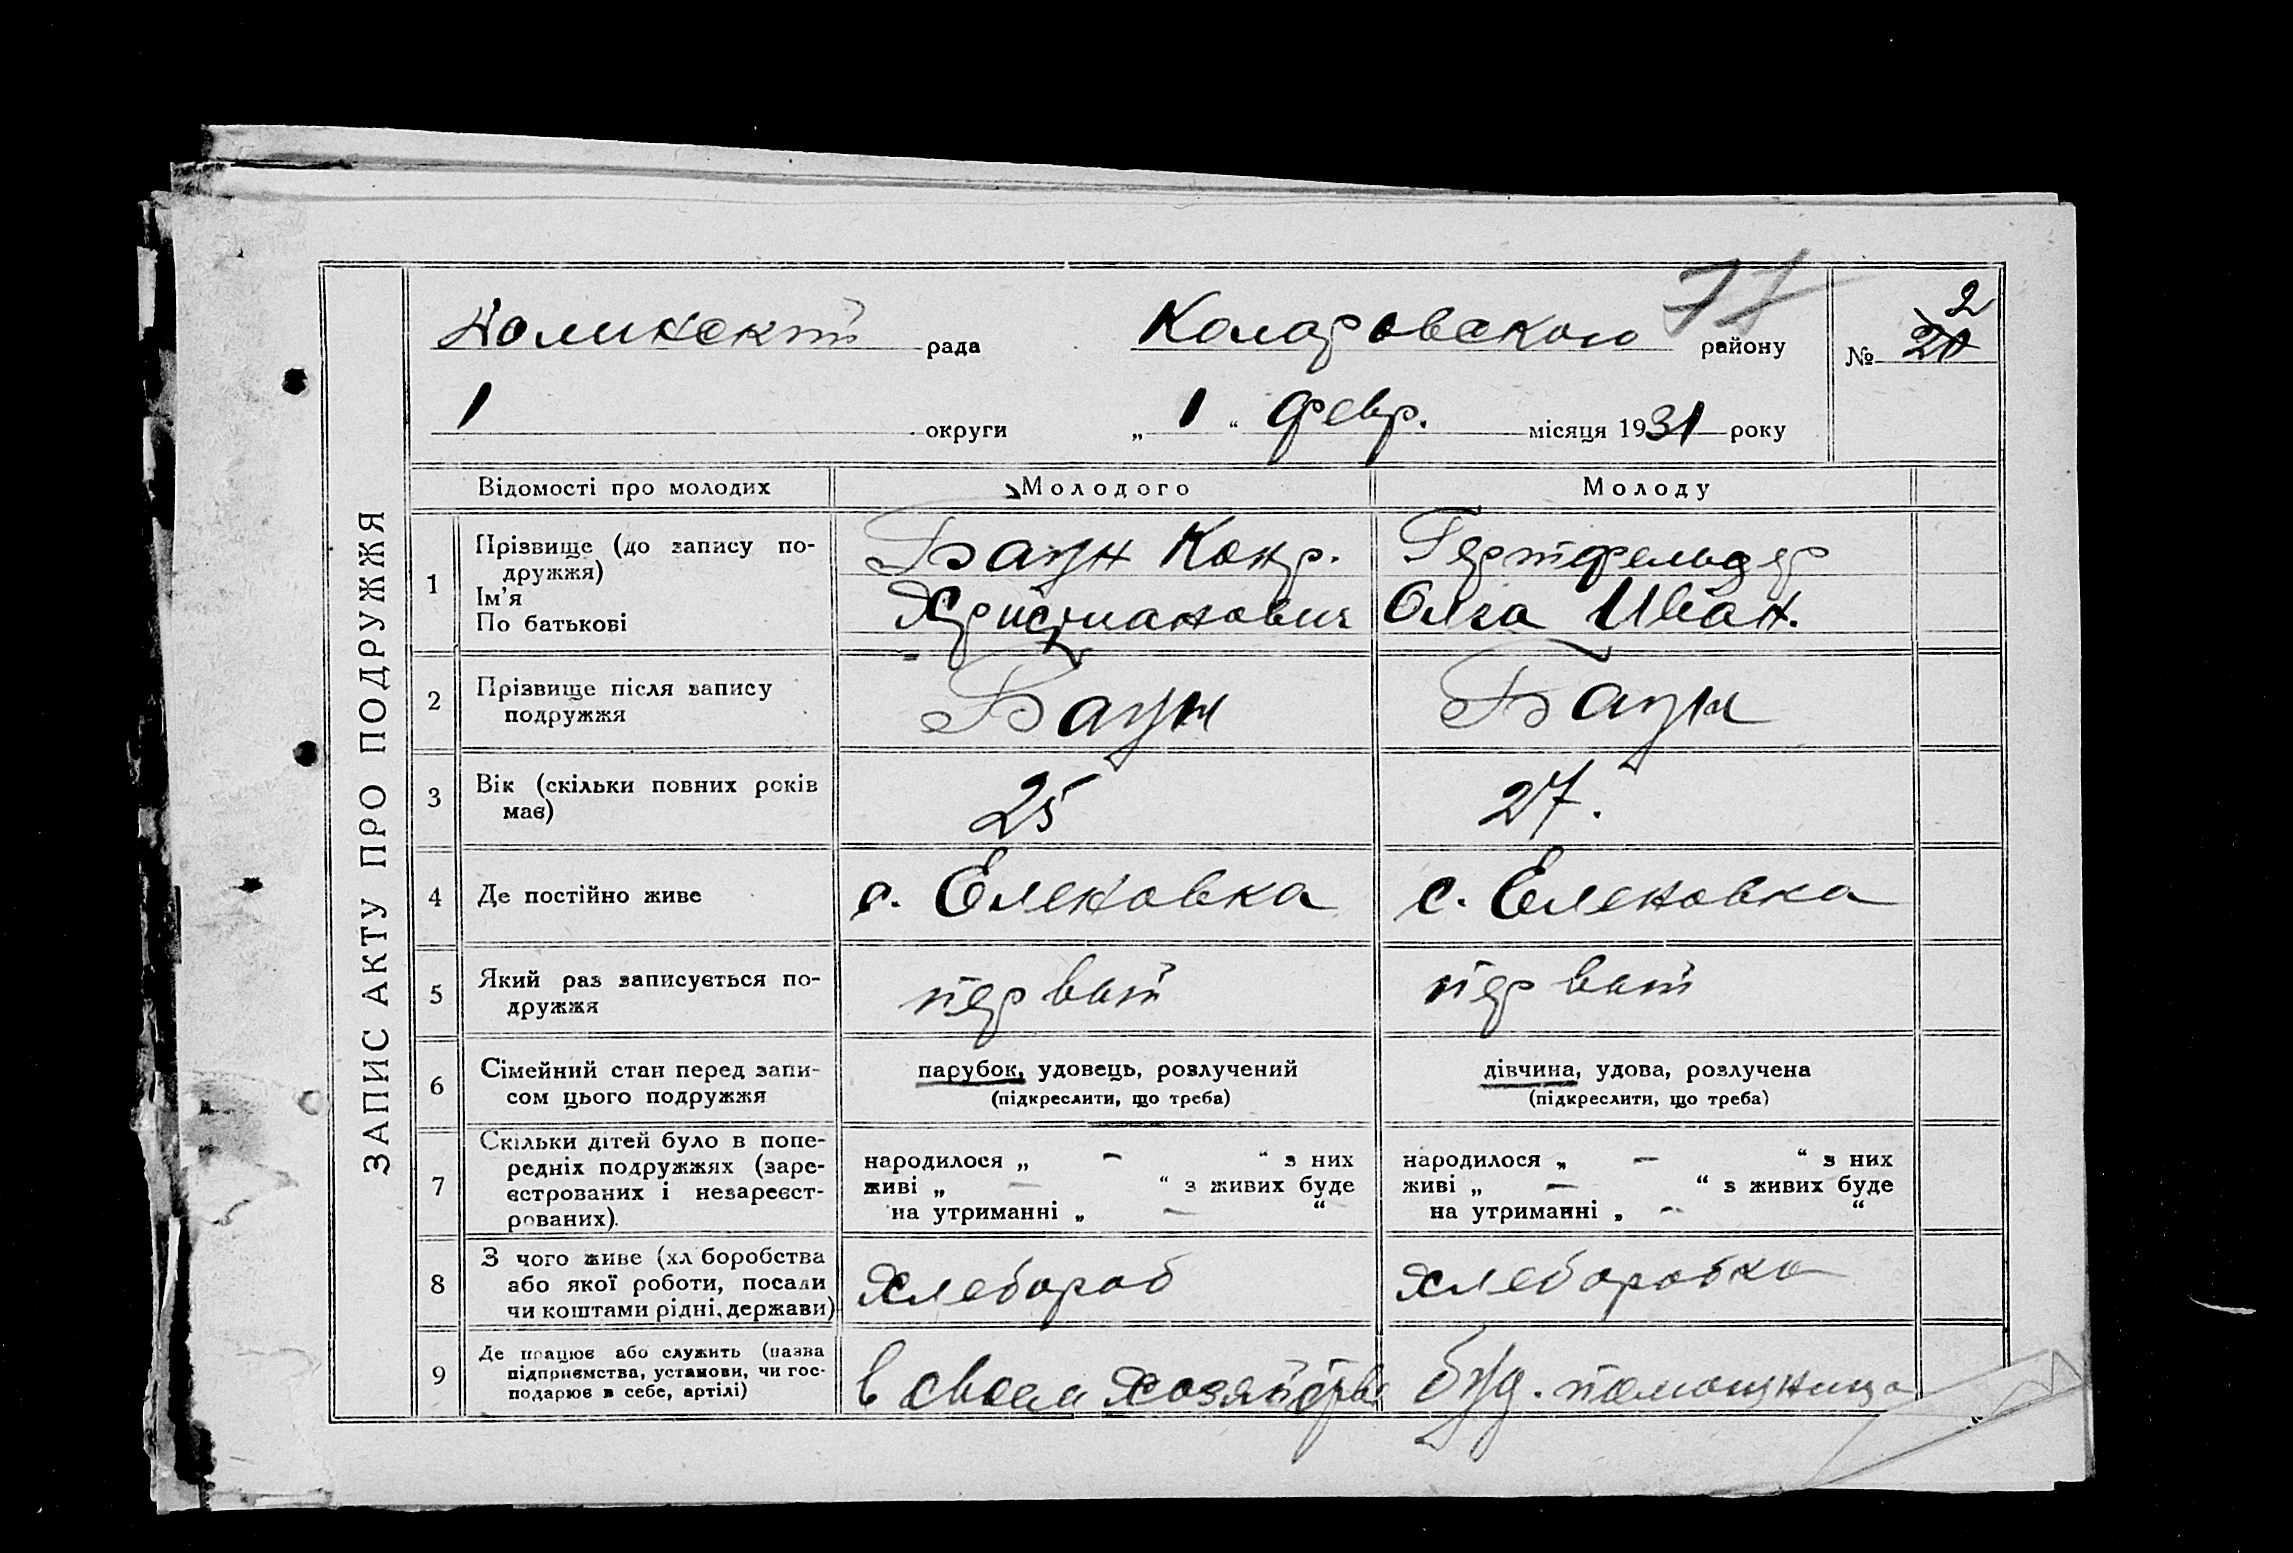 ЗАПИС АКТУ ПРО ПОДРУЖЖЯ
Долинский рада Коларовского району 77
№ 20 2
1 округи „ 1 “ февр. місяця 1931 року
Відомості про молодих Молодого Молоду
1 Прізвище (до запису подружжя) Ім’я По батькові
Баун Конр. Христианович
Гертфельдер Олга Иван.
2 Прізвище після запису подружжя Баун Баун
3 Вік (скільки повних років має) 25 27.
4 Де постійно живе с. Еленовка с. Еленовка
5 Який раз записується подружжя первый первый
6 Сімейний стан перед записом цього подружжя
парубок, удовець, розлучений
(підкреслити, що треба)
дівчина, удова, розлучена
(підкреслити, що треба)
7 Скільки дітей було в попередніх подружжях (зареєстрованих і незареєстрованих).
народилося „ — “ з них
живі „ — “ з живих буде
на утриманні „ — “
народилося „ — “ з них
живі „ — “ з живих буде
на утриманні „ — “
8 З чого живе (хл боробства або якої роботи, посади чи коштами рідні, держави) хлебороб хлеборобка
9 Де працює або служить (назва підприємства, установи, чи господарює в себе, артілі) в своем хозяйстве буд. помошница